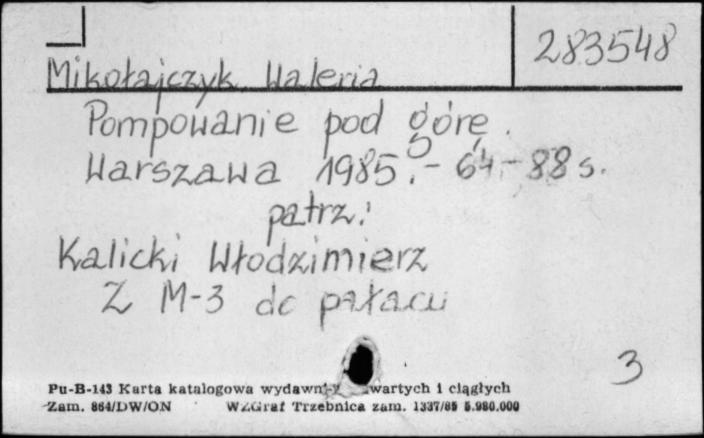 283548
Mikołajczyk Waleria
Pompowanie pod górę.
Warszawa 1985.- 64,- 88 s.
patrz:
Kalicki Włodzimierz
Z M-3 do pałacu
3
Pu-B-143 Karta katalogowa wydawn. zwartych i ciągłych
Zam. 864/DW/ON WZGraf Trzebnica zam. 1337/85 5.980.000